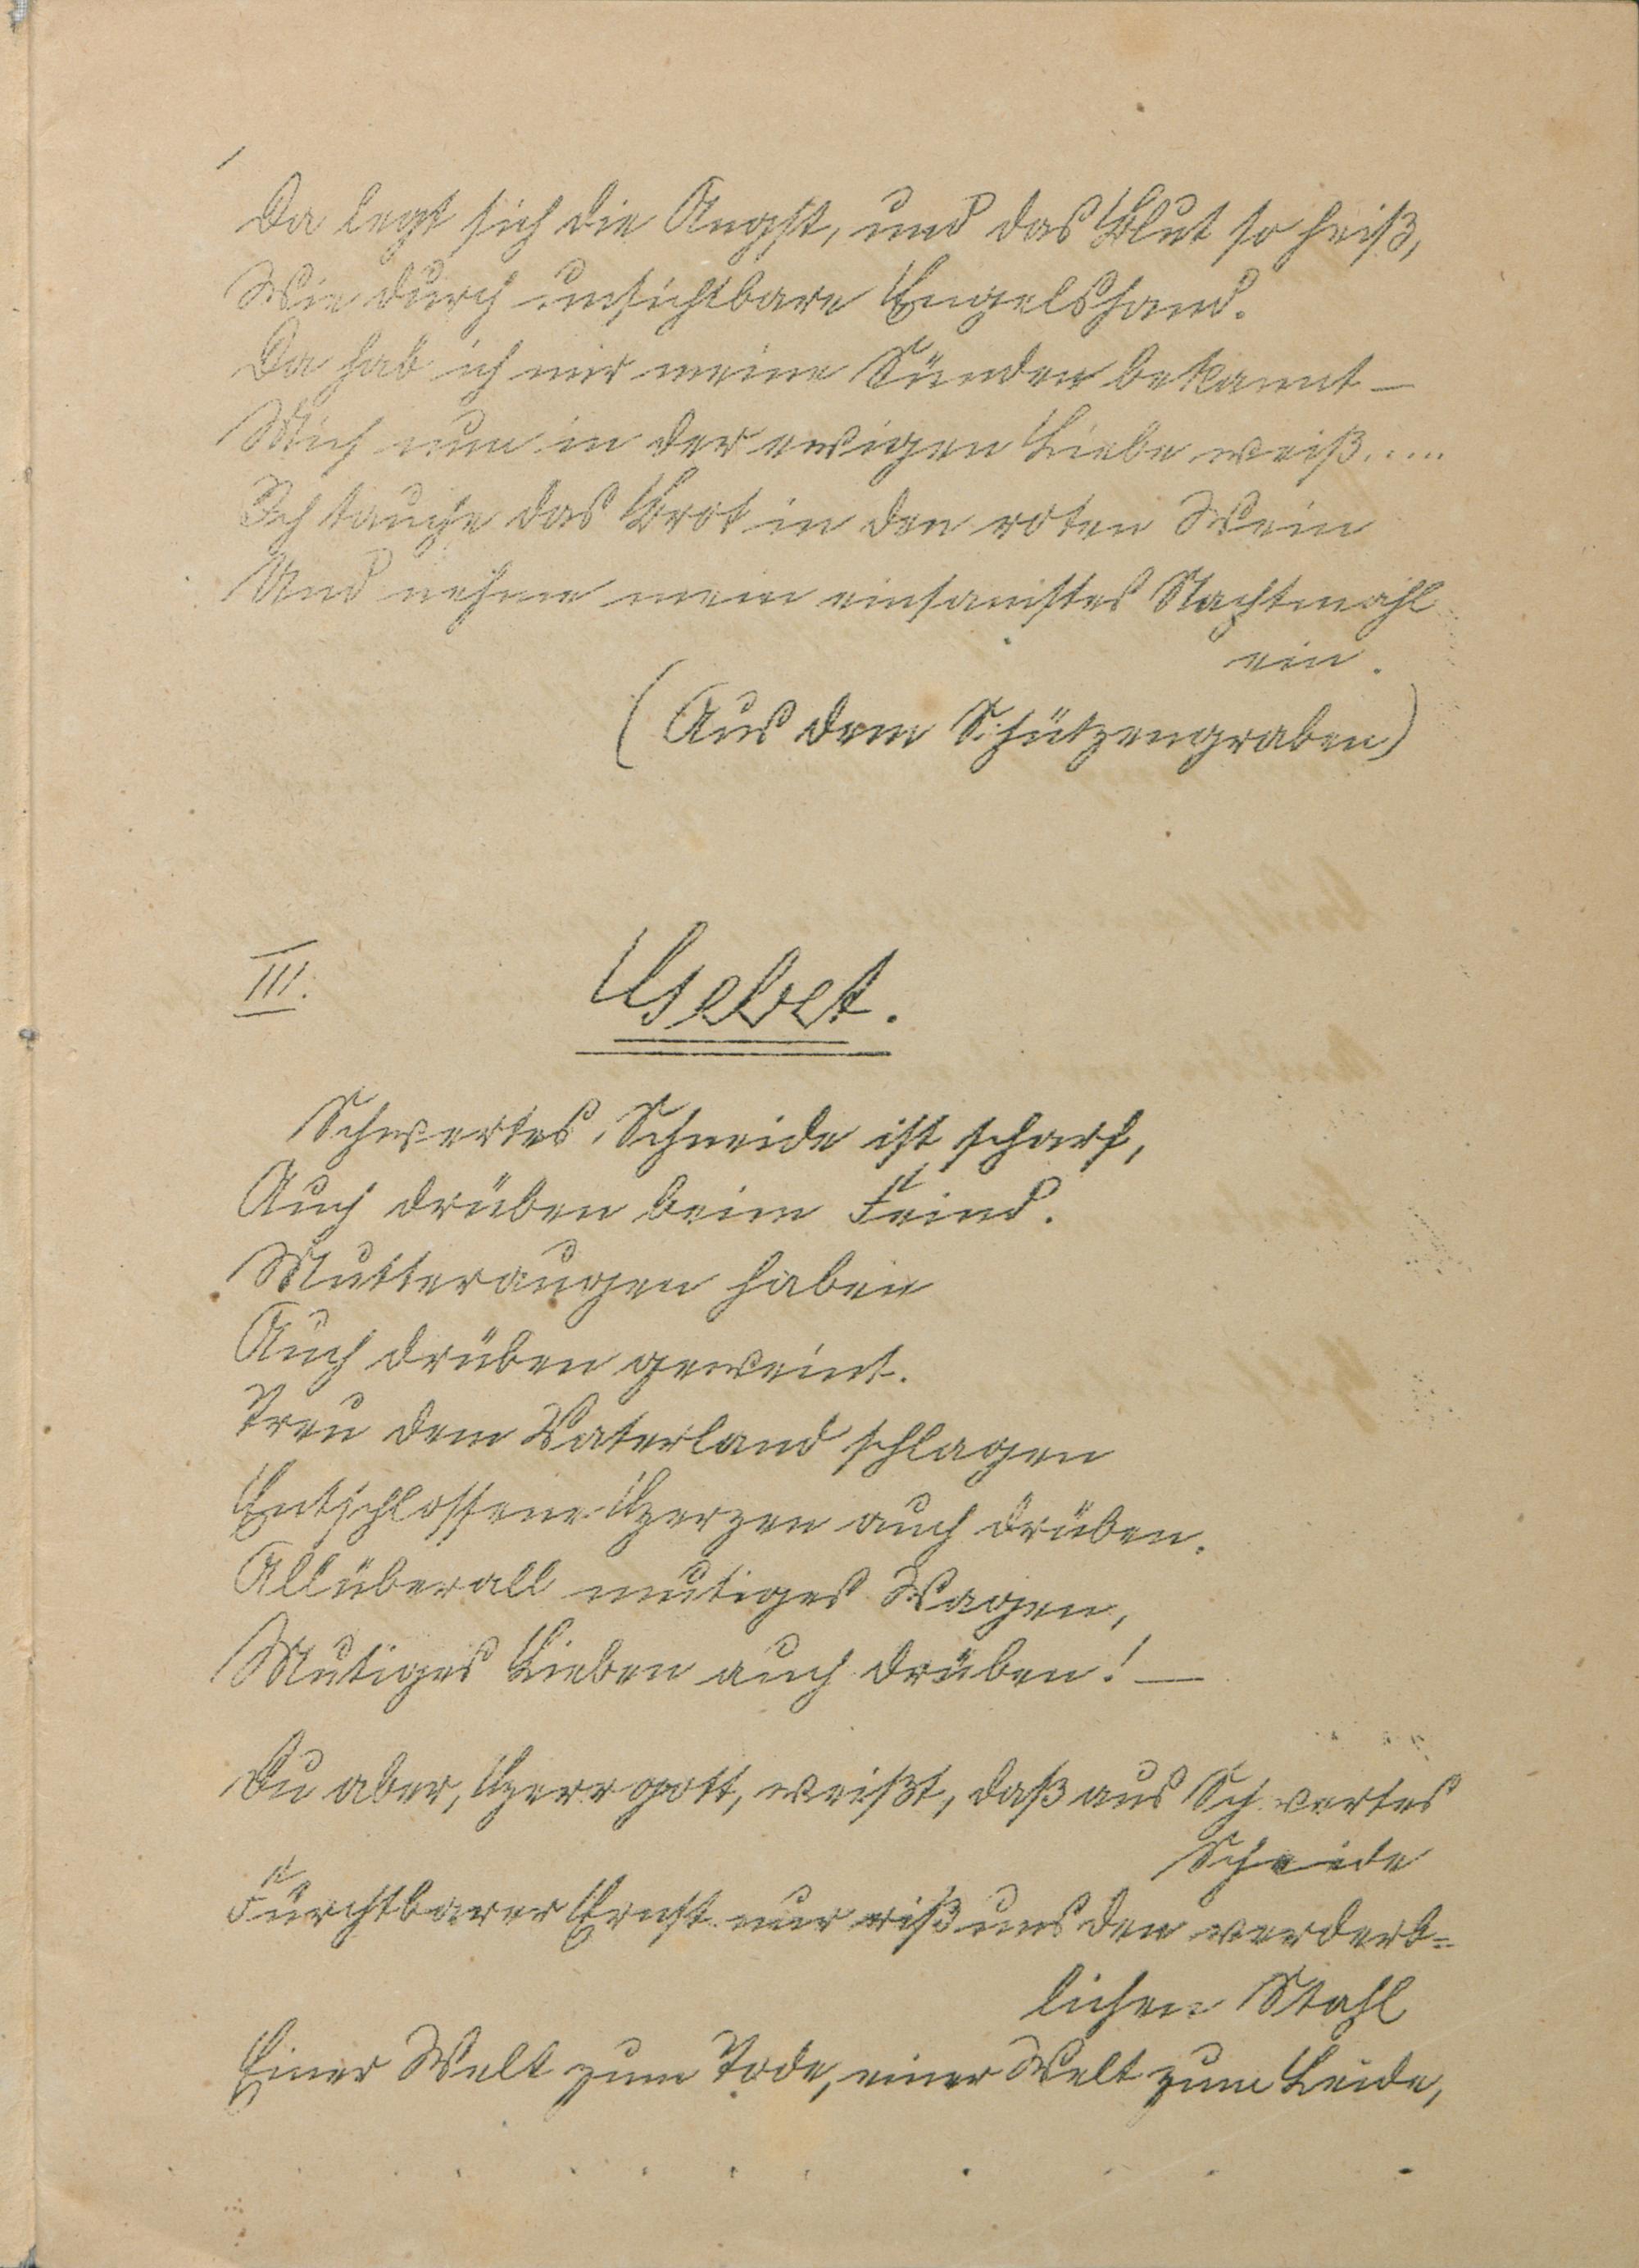 Da legt sich die Angst, und das Blut so heiß,
Wie durch unsichtbare Engelshand.
Da hab ich mir meine Sünden bekannt –
Mich nun in der ewigen Liebe weiß.....
Ich tauche das Brot in den roten Wein
Und nehme mein einsamstes Nachtmahl
ein.
(Aus dem Schützengraben)
III. Gebet.
Schwertes Schneide ist scharf,
Auch drüben beim Feind.
Mutteraugen haben
Auch drüben geweint.
Treu dem Vaterland schlagen
Entschlossene Herzen auch drüben.
Allüberall mutiges Wagen,
Mutiges Lieben auch drüben! –
Du aber, Herrgott, weißt, daß aus Schwertes
Scheide
Furchtbarer Ernst nur riß uns den verderb=
lichen Stahl
Einer Welt zum Tode, einer Welt zum Leide,